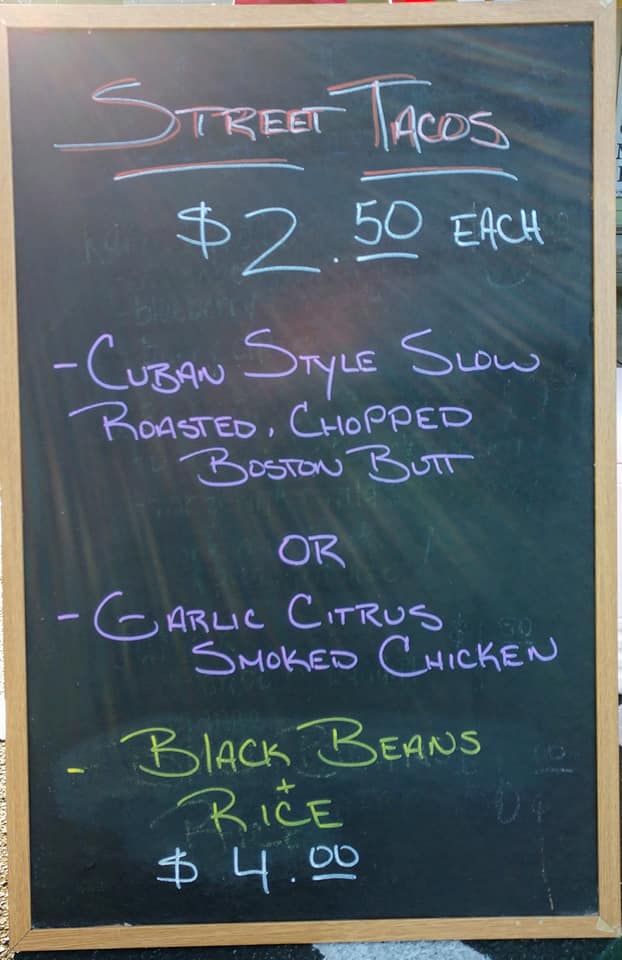 STREET TACOS
$2.50 EACH
- CUBAN STYLE SLOW
ROASTED, CHOPPED
BOSTON BUTT
OR
- GARLIC CITRUS
SMOKED CHICKEN
- BLACK BEANS
+
RICE
$4.00